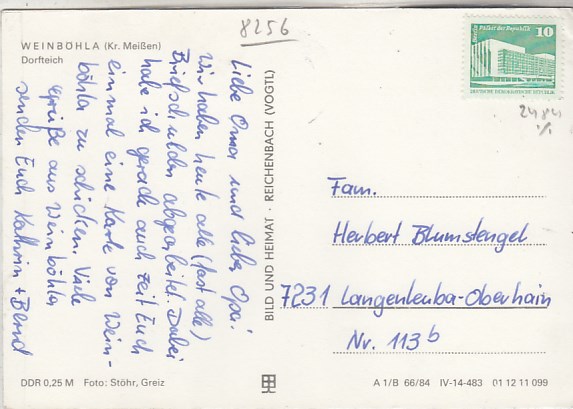 8256
WEINBÖHLA (Kr. Meißen)
Dorfteich
Liebe Oma und lieber Opa!
Wir haben heute alle (fast alle)
Briefschulden abgearbeitet. Dabei
habe ich gerade auch Zeit Euch
einmal eine Karte von Wein-
böhla zu schicken. Viele
Grüße aus Weinböhla
senden Euch Kathrin + Bernd
BILD UND HEIMAT · REICHENBACH (VOGTL)
Berlin Palast der Republik
10
DEUTSCHE DEMOKRATISCHE REPUBLIK
2484
Fam.
Herbert Blumstengel
7231 Langenleuba-Oberhain
Nr. 113b
DDR 0,25 M Foto: Stöhr, Greiz
A 1/B 66/84 IV-14-483 01 12 11 099